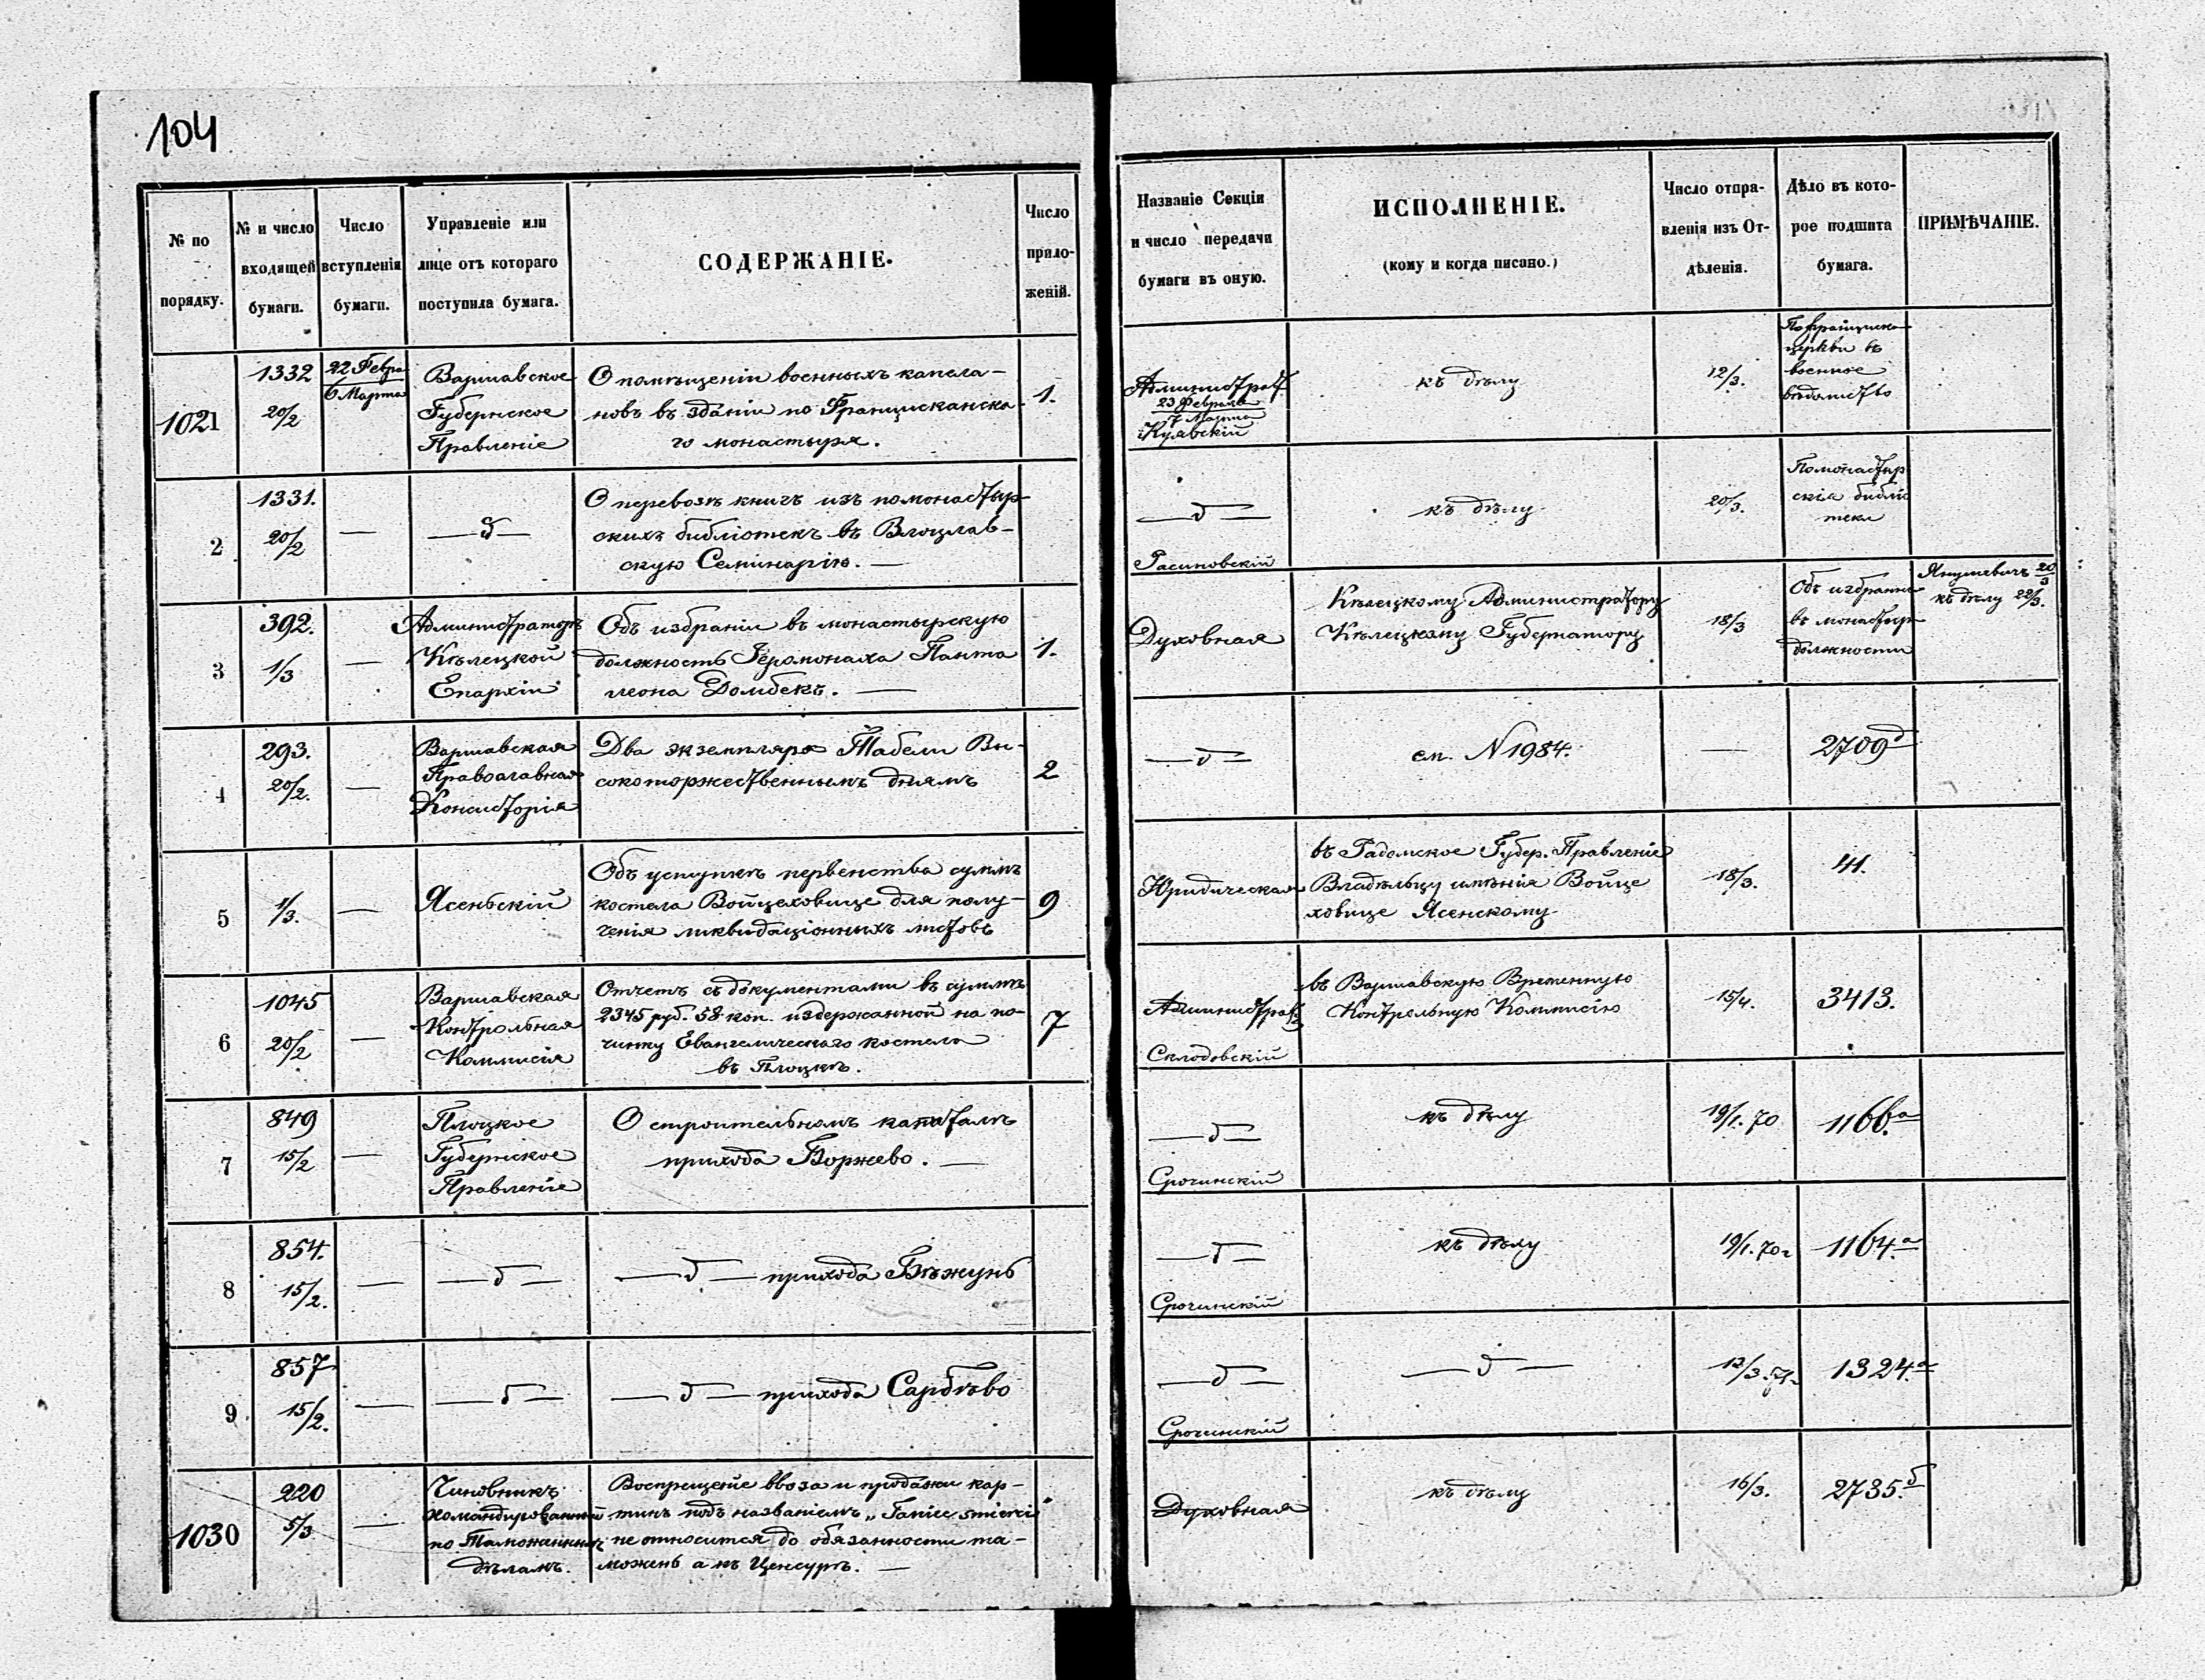 104
№ по порядку.
№ и число входящей бумаги.
Число вступленія бумаги.
Управленіе или лице отъ котораго поступила бумага.
СОДЕРЖАНІЕ.
Число приложеній.
Названіе Секціи и число передачи бумаги въ оную.
ИСПОЛНЕНІЕ.
(кому и когда писано.)
Число отправленія изъ Отдѣленія.
Дѣло въ которое подшита бумага.
ПРИМѢЧАНІЕ.
1021
1332
20/2
22 Февра
6 Марта
Варшавское
Губернское
Правленіе
О помѣщеніи военныхъ капела-
новъ въ зданіи по Францисканска-
го монастыря.
1.
Администрат.
23 Февраля
7 Марта
Куявскій
къ дѣлу
12/3.
церкви въ
военное
вѣдомство
2
1331.
20/2
—
— д —
О перевозѣ книгъ изъ помонастыр-
скихъ библіотекъ въ Влоцлав-
скую Семинарію. —
— д —
Расиновскій
къ дѣлу
20/3.
Помонастыр
скія библіо
теки
3
392.
1/3
—
Администраторъ
Кѣлецкой
Епархіи
Объ избраніи въ монастырскую
должность Іеромонаха Панта
леона Домбекъ. —
1.
Духовная
Кѣлецкому Администратору
Кѣлецкому Губернатору
18/3
Объ избраніи
въ монастыр
должности
Янушевичъ 20/3
къ дѣлу 22/3.
4
293.
20/2.
—
Варшавская
Православная
Консисторія
Два экземпляра Табели Вы-
сокоторжественнымъ днямъ
2
— д —
см. N 1984.
—
2709 д
5
1/3.
—
Ясеньскій
Объ уступкѣ первенства суммъ
костела Войцеховице для полу-
ченія ликвидаціонныхъ листовъ
9
Юридическая
въ Радомское Губер. Правленіе
Владѣльцу имѣнія Войце
ховице Ясенскому
18/3.
41.
6
1045
20/2
—
Варшавская
Контрольная
Коммисія
Отчетъ съ документами въ суммѣ
2345 руб. 58 коп. издержанной на по-
чинку Евангелическаго костела
въ Плоцкѣ.
7
Администрат.
Склодовскій
въ Варшавскую Временную
Контрольную Коммисію
15/4.
3413.
7
849
15/2
—
Плоцкое
Губернское
Правленіе
О строительномъ капиталѣ
прихода Боржево. —
— д —
Срочинскій
къ дѣлу
19/1. 70
1166. а
8
854.
15/2.
—
— д —
— д — прихода Бѣжунь
— д —
Срочинскій
къ дѣлу
19/1. 70 г
1164. а
9
857
15/2.
—
— д —
— д — прихода Сарбѣво
— д —
Срочинскій
— д —
1324. а
1030
220
5/3
—
Чиновникъ
командированный
по Таможеннымъ
дѣламъ.
Воспрещеніе ввоза и продажи кар-
тинъ подъ названіемъ „Taniec śmierci
не относится до обязанности та-
можень а къ Ценсурѣ. —
Духовная
къ дѣлу
16/3.
2735. б